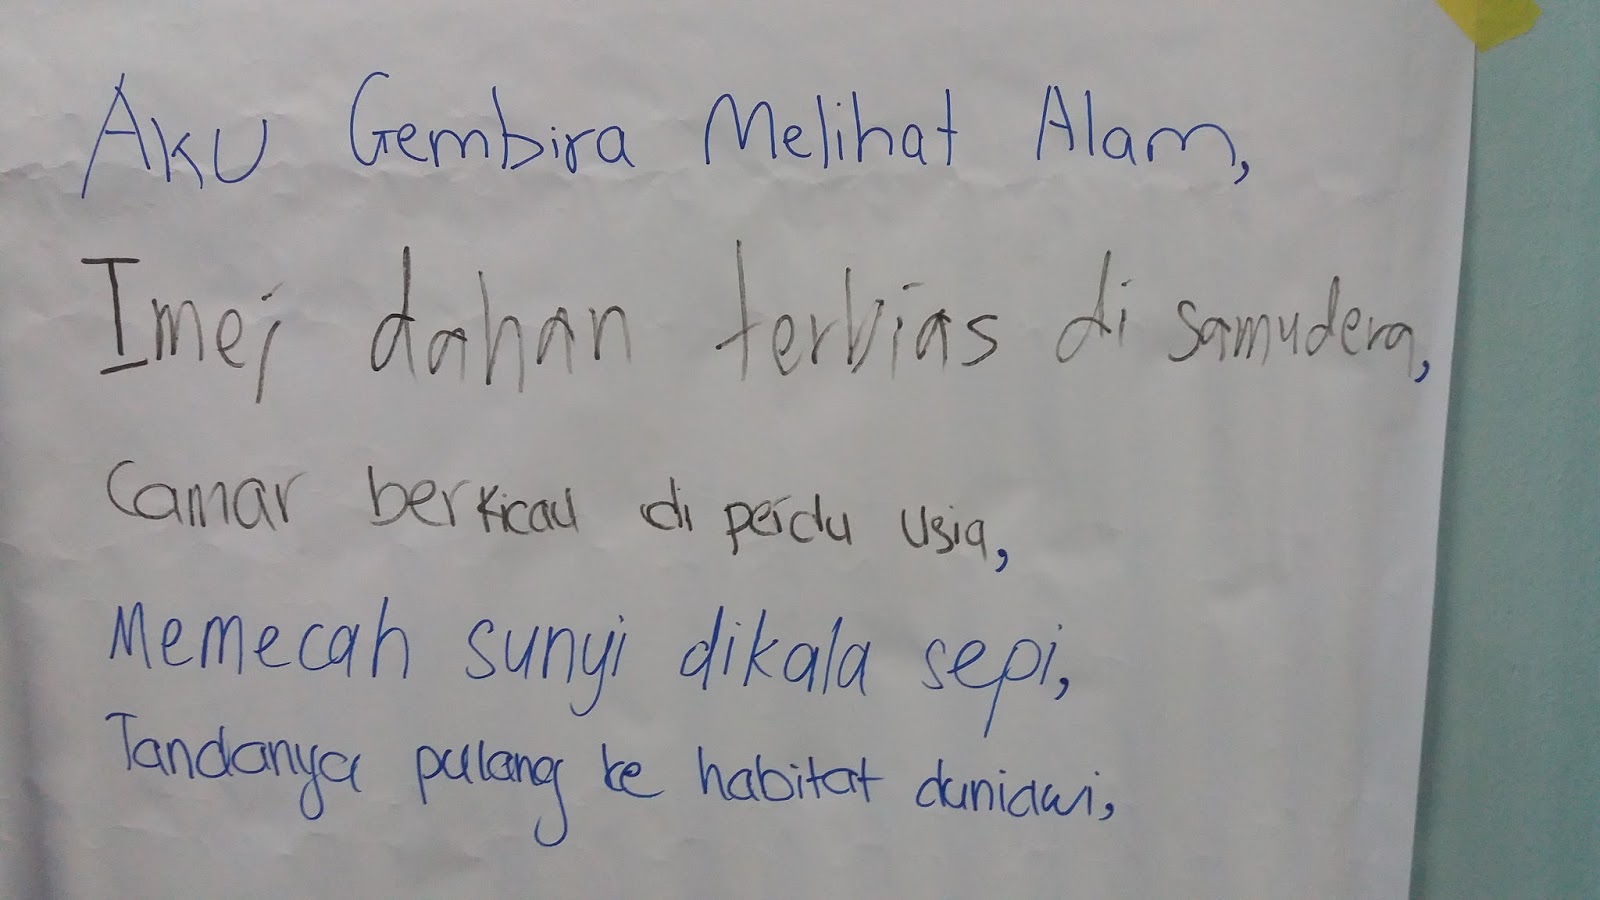 Aku Gembira Melihat Alam,
Imej dahan terbias di samudera,
Camar berkicau di perdu usia,
Memecah sunyi dikala sepi,
Tandanya pulang ke habitat duniawi,